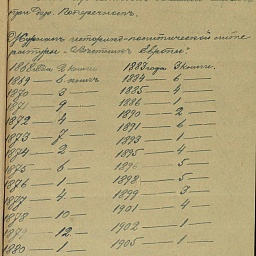 при Дух. Поперечномъ.
Журналъ историко-политической литературы - Вѣстникъ Европы:
1868 года 2 книги 1883 года 3 книги.
1869 — 6 книгъ 1884 — 6
1870 — 3 1885 — 4
1871 — 9 1886 — 1
1872 — 4 1890 — 2
1873 — 7 1891 — 6
1874 — 2 1893 — 1
1875 — 6 1895 — 4
1876 — 1 1896 — 5
1877 — 4 1898 — 5
1878 — 10 1899 — 3
12 1901 — 4
1880 — 1 1902 — 1
1905 — 1